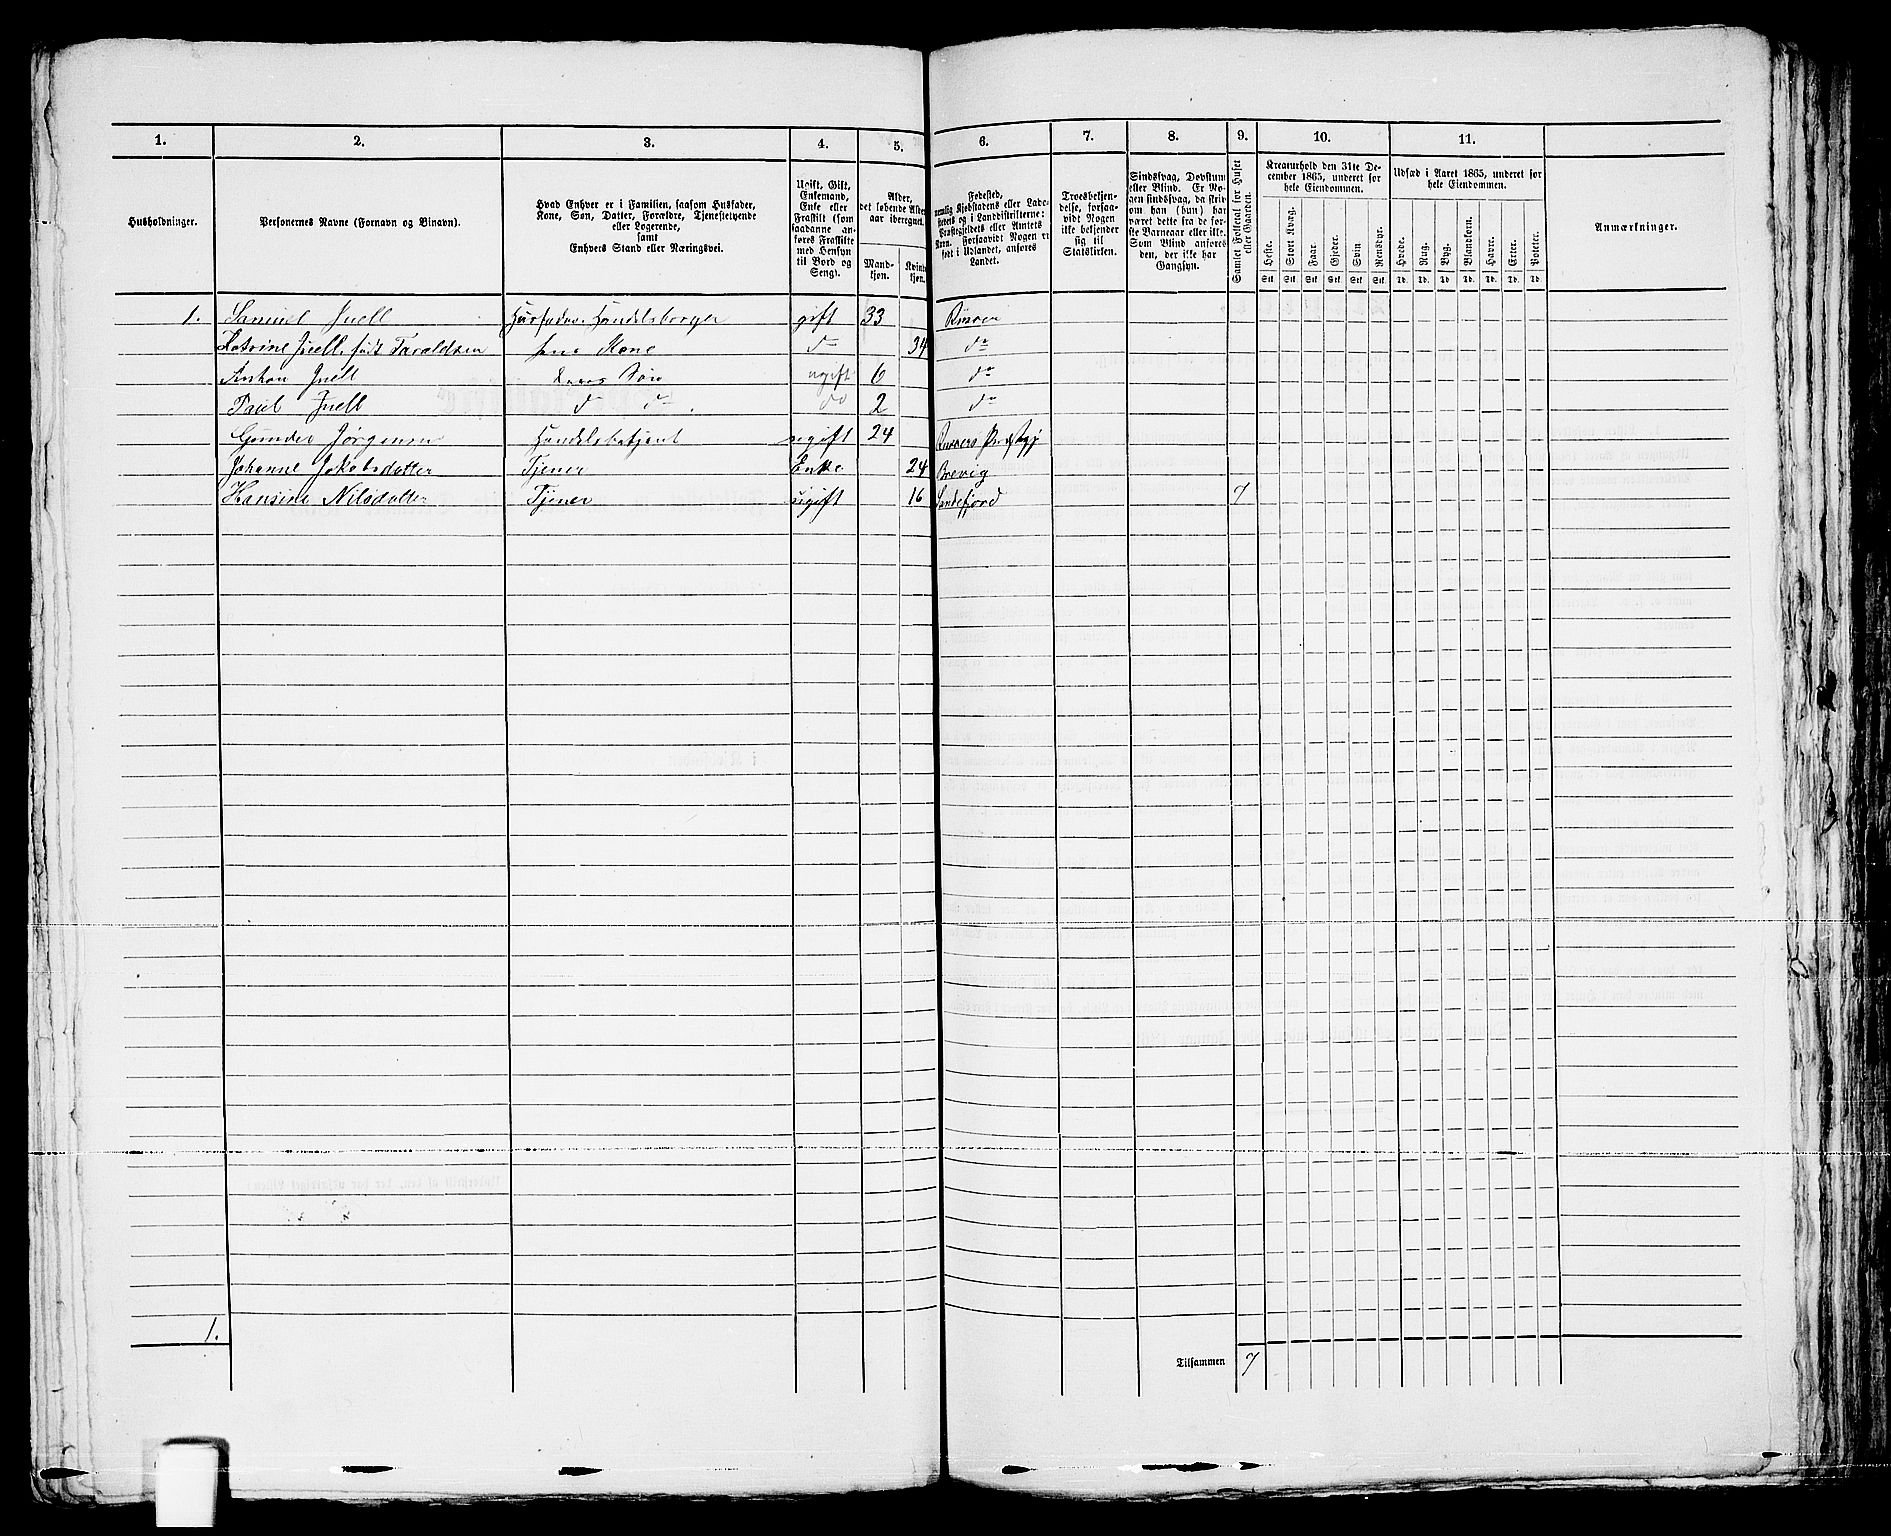 1. 2. 3. 4. 5. 6. 7. 8. 9. 10. 11.
Husholdninger.
Personernes Navne (Fornavn og Binavn).
Hvad Enhver er i Familien, saasom Husfader,
Kone, Søn, Datter, Forældre, Tjenestetyende
eller Logerende,
samt
Enhvers Stand eller Næringsvei.
Ugift, Gift,
Enkemand,
Enke eller
Fraskilt (som
saadanne an-
føres Fraskilte
med Hensyn
til Bord og
Seng).
Alder,
det løbende Alders-
aar iberegnet.
Mand-
kjøn.
Kvinde-
kjøn.
Fødested,
nemlig Kjøbstadens eller Lade-
stedets og i Landdistrikterne:
Præstegjeldets eller Annexets
Navn. Forsaavidt Nogen er
født i Udlandet, anføres
Landet.
Troesbekjen-
delse, forsaa-
vidt Nogen
ikke bekjender
sig til
Statskirken.
Sindssvag, Døvstum
eller Blind. Er No-
gen sindssvag, da skriv
om han (hun) har
været dette fra de før-
ste Barneaar eller ikke.
Som Blind anføres
den, der ikke har
Gangsyn.
Samlet Folketal for Huset
eller Gaarden.
Kreaturhold den 31te De-
cember 1865, underet for
hele Eiendommen.
Heste. Stort Kvæg. Faar. Gjeder. Sviin Rensdyr.
Stk Stk Stk Stk Stk Stk
Udsæd i Aaret 1865, underet for
hele Eiendommen.
Hvede. Rug. Byg. Blandkorn. Havre. Erter. Poteter.
Td. Td. Td Td. Td. Td. Td
Anmærkninger.
1. Samuel Juell Husfader. Handelsborger gift 33 Risøer
Katrine Juell, født Taraldsen hans Kone do 34 do
Anton Juell deres Søn ugift 6 do
Paul Juell d do do 2 do
Gunder Jørgensen Handelsbetjent ugift 24
Johanne Jakobsdatter Tjener Enke 24 Brevig
Hansine Nilsdatter Tjener ugift 16 Sandefjord 7
1.
Tilsammen 7